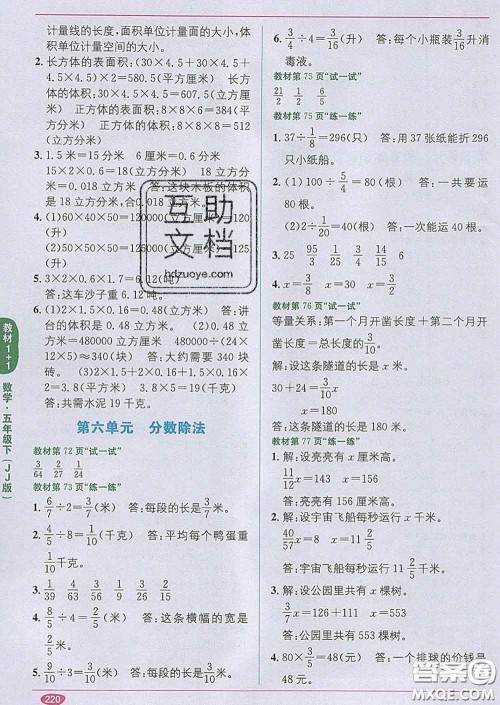 计量线的长度，面积单位计量面的大小，体
积单位计量空间的大小。
2. 长方体的表面积：(30×4.5+30×4.5+
4.5×4.5)×2=580.5(平方厘米)　长方
体的体积：30×4.5×4.5=607.5(立方厘
米)　正方体的表面积：8×8×6=384(平
方分米)　正方体的体积：8×8×8=512
(立方分米)
3. 1.5米=15分米　6厘米=0.6分米
15×2×0.6=18(立方分米)　18立方分
米=0.018立方米　答：这块木板的体积
是18立方分米，是0.018立方米。
4. (1)60×40×50=120000(立方厘米)=120
(升)
(2)50×40×60=120000(立方厘米)=120
(升)
5. 3×2×0.6×1.7=6.12(吨)
答：这车沙子重6.12吨。
6. (1)2×1.5×0.16=0.48(立方米)　答：讲
台的体积是0.48立方米。　(2)0.48立方
米=480000立方厘米　480000÷(24×
12×5)≈340(块)　答：大约需要340块
砖。　(3)2×1.5+2×0.16+1.5×0.16
×2=3.8(平方米)　3.8×5=19(千克)
答：共需水泥19千克。
第六单元　分数除法
教材第72页“试一试”
3/64　2/27　1/34
教材第73页“练一练”
1. 6/7÷2=3/7(米)　答：每段的长是3/7米。
2. 3/10÷6=1/20(千克)　答：平均每个鸭蛋重
1/20千克。
3. 1/39　4/63　1/15　3/56　1/26　2/9
4. 8/5÷4=2/5(米)　答：这条横幅的宽是
2/5米。
5. 9/10÷3=3/10(米)　答：每段的长是3/10米。
6. 3/4÷4=3/16(升)　答：每个小瓶装3/16升消
毒液。
教材第75页“试一试”
21/2　1/2　1/6
教材第75页“练一练”
1. 37÷1/8=296(只)　答：用37张纸能折296
只小纸船。
2. (1)100÷5/4=80(根)　答：一共要运
80根。
(2)2÷1/20=40(根)　答：一次能运40根。
3. 25　95/3　1/25　3/4　21/5
4. x=3/8　x=30　x=3/2
教材第76页“试一试”
等量关系：第一个月开凿长度+第二个月开
凿长度=总长度的3/10。
解：设这条隧道的长是x米。
30+24=3/10x
x=180
答：这条隧道的长是180米。
教材第77页“练一练”
1. 解：设亮亮有x厘米高。
11/12x=143　x=156
答：亮亮有156厘米高。
2. 解：设宇宙飞船每秒运行x千米。
40/57x=8　x=11 2/5
答：宇宙飞船每秒运行11 2/5千米。
3. 解：设公园里共有x棵树。
3/7x=126+111　x=553
答：公园里共有553棵树。
4. 80×3/5=48(元)　答：一个排球的价钱是
48元。
教材1+1
数学·五年级下(JJ版)
220
互助
文档
hdzuoye.com
答案圈
MXQE.COM